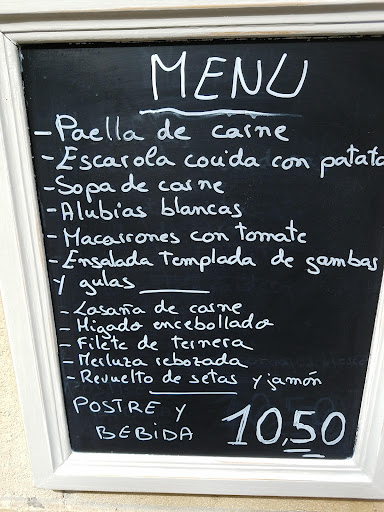 MENU
- Paella de carne
- Escarola cocida con patata
- Sopa de carne
- Alubias blancas
- Macarrones con tomate
- Ensalada Templada de gambas
y gulas
- Lasaña de carne
- Higado encebollado
- Filete de ternera
- Merluza rebozada
- Revuelto de setas y jamón
POSTRE Y
BEBIDA 10,50